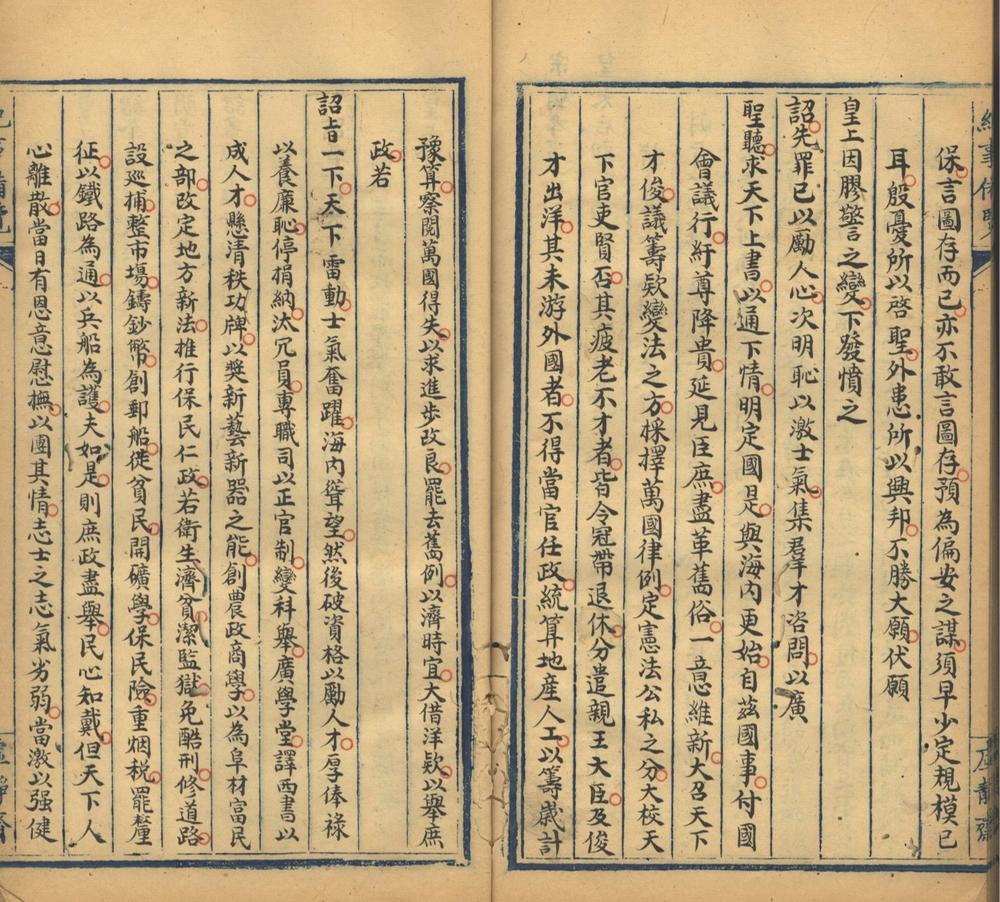 保言圖存而已亦不敢言圖存預為偏安之謀須早少定規模已
耳殷憂所以啓聖外患所以興邦不勝大願伏願
皇上因膠警之變下發憤之
詔先罪已以勵人心次明恥以激士氣集羣才咨問以廣
聖聽求天下上書以通下情明定國是與海内更始自茲國事付國
會議行紆尊降貴延見臣庶盡革舊俗一意維新大召天下
才俊議籌欵變法之方採擇萬國律例定憲法公私之分大校天
下官吏賢否其疲老不才者皆令冠帶退休分遣親王大臣及俊
才出洋其未游外國者不得當官任政統算地産人工以籌歲計
豫算察閱萬國得失以求進步改良罷去舊例以濟時宜大借洋欵以舉庶
政若
詔旨一下天下雷動士氣奮躍海内聳望然後破資格以勵人才厚俸祿
以養廉恥停捐納汰冗員專職司以正官制變科舉廣學堂譯西書以
成人才懸清秩功牌以奬新藝新器之能創農政商學以為阜材富民
之部改定地方新法推行保民仁政若衛生濟貧潔監獄免酷刑修道路
設巡捕整市塲鑄鈔幣創郵船徙貧民開礦學保民險重烟税罷釐
征以鐵路為通以兵船為護夫如是則庶政盡舉民心知戴但天下人
心離散當日有恩意慰撫以團其情志士之志氣劣弱當激以强健